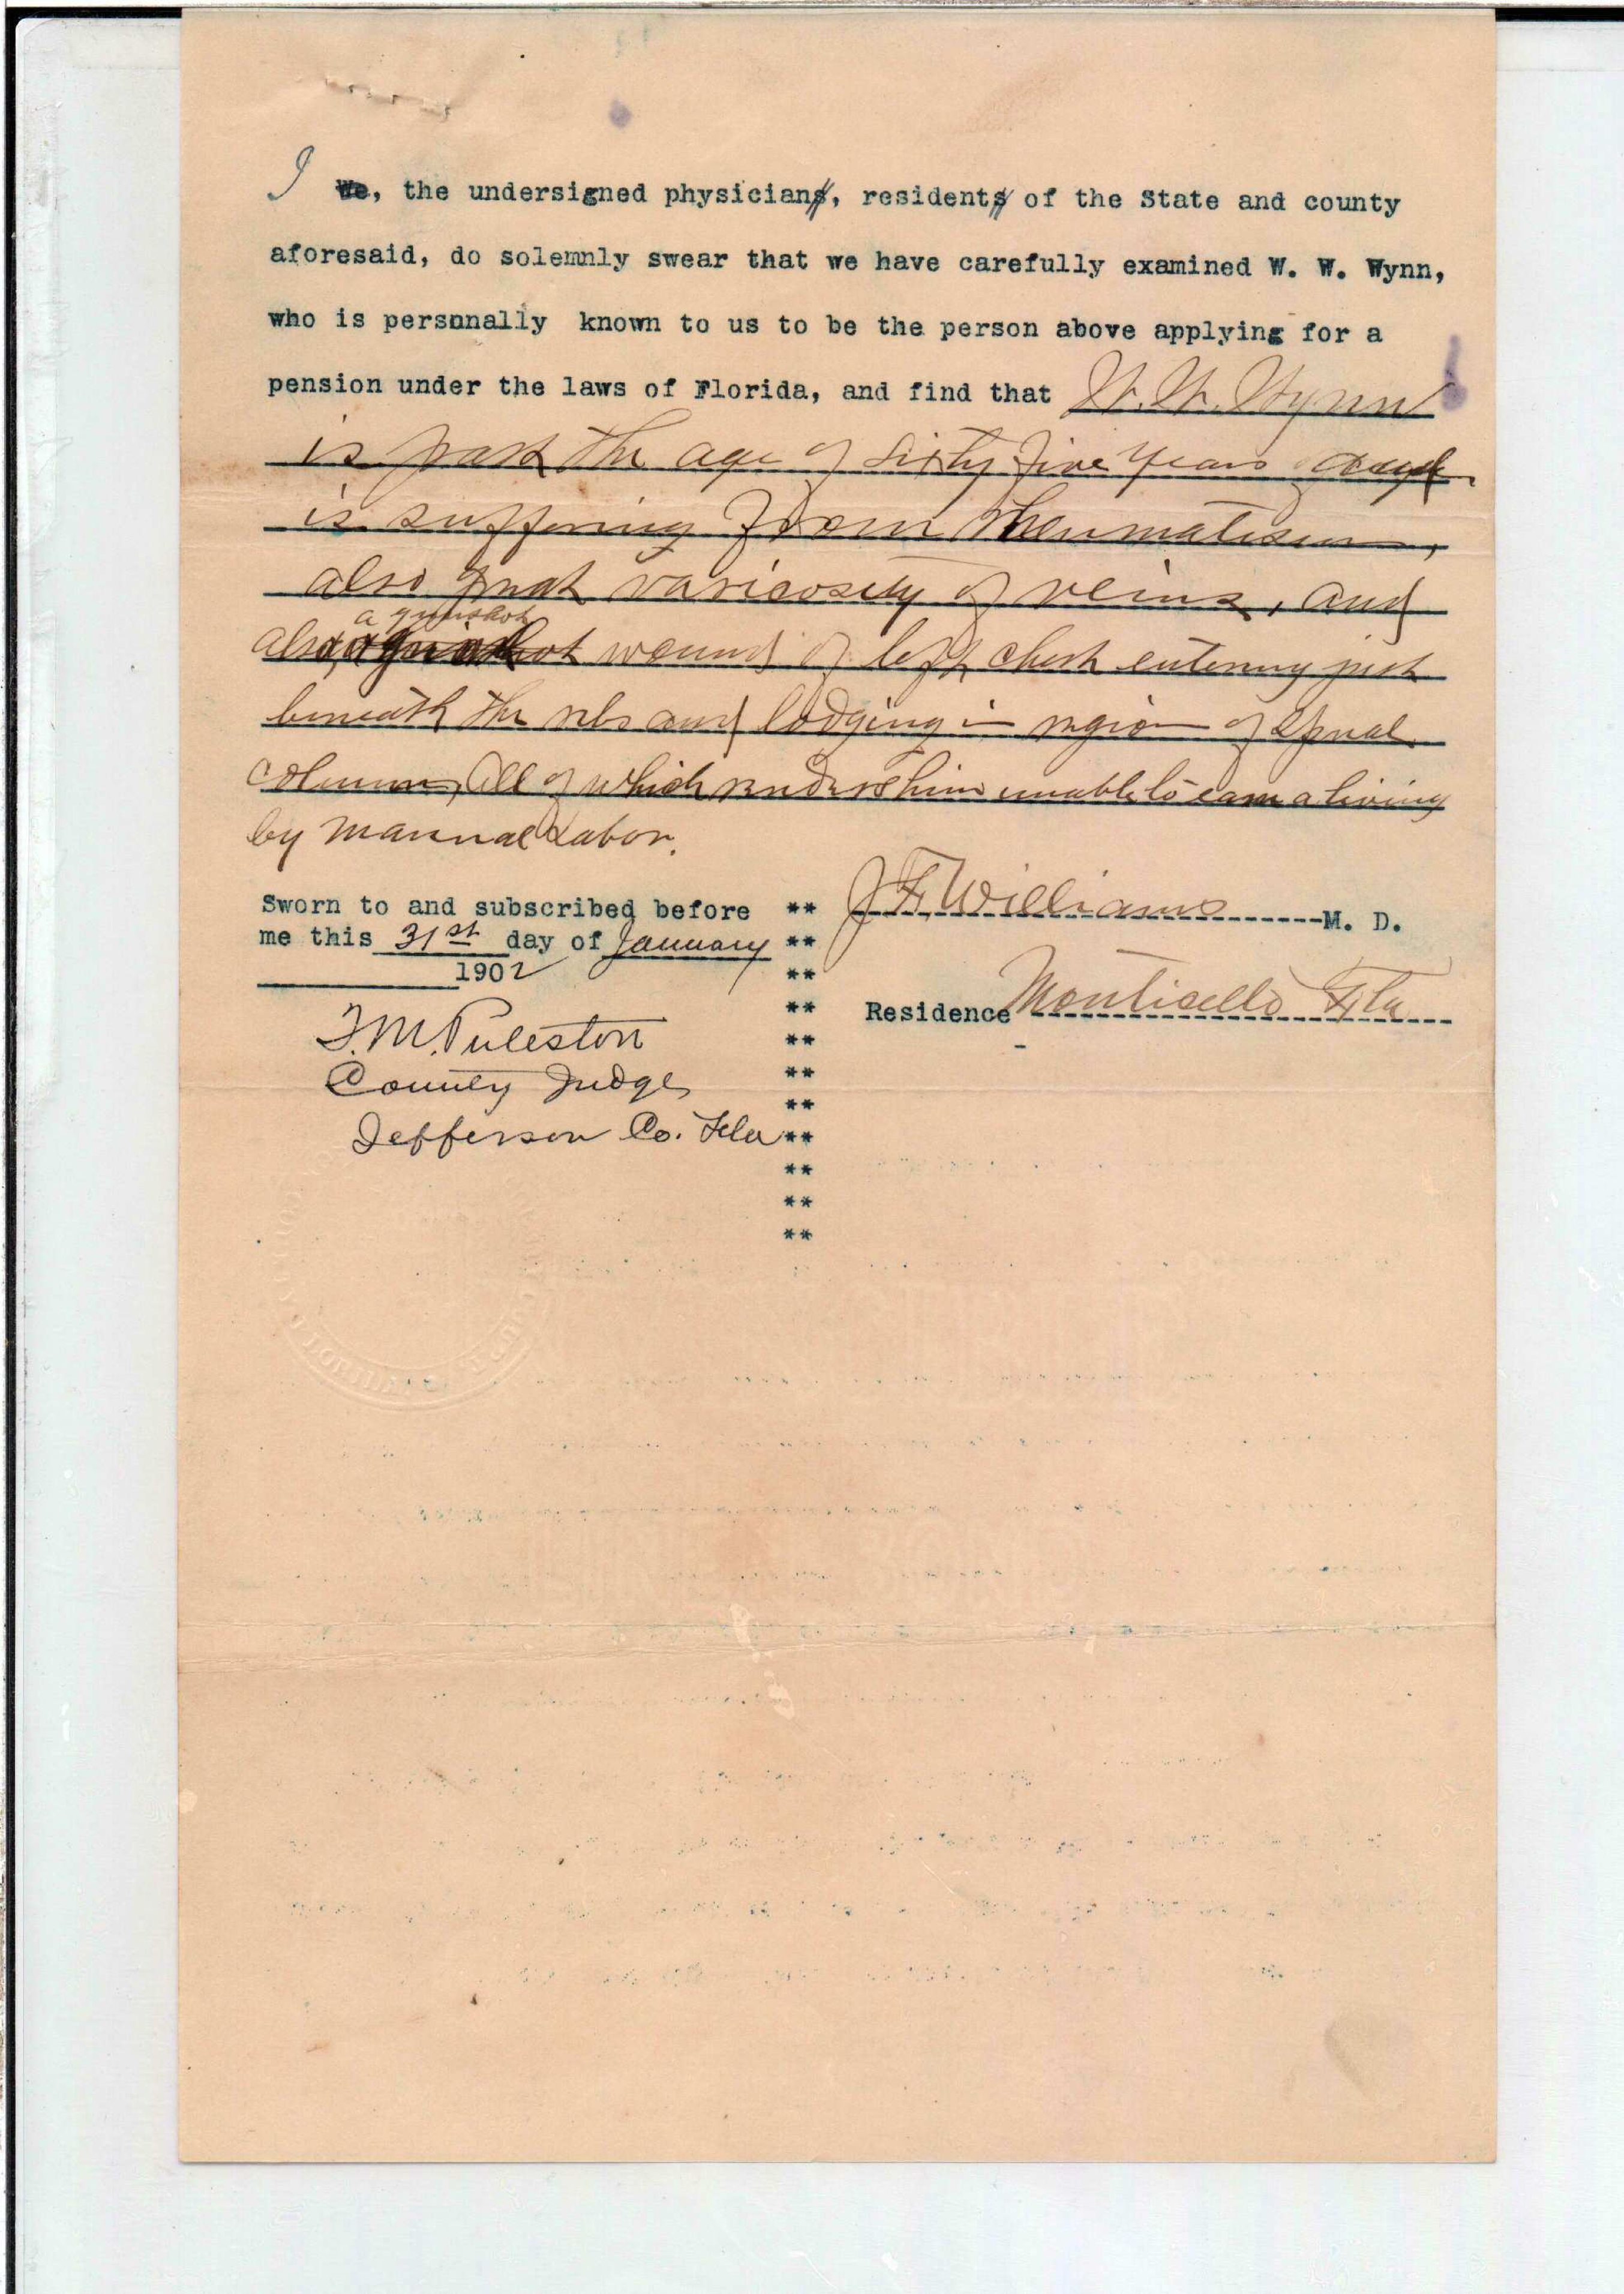 I We, the undersigned physicians, residents of the State and county
aforesaid, do solemnly swear that we have carefully examined W. W. Wynn,
who is persnnally known to us to be the person above applying for a
pension under the laws of Florida, and find that W. W. Wynn
is past the age of sixty five years and
is suffering from Rheumatism,
also great varicosity of veins, and
a gunshot
also a gunshot wound of left chest entering just
beneath the ribs and lodging in region of spinal
column, All of which renders him unable to earn a living
by manual Labor.
Sworn to and subscribed before ** J. F. Williams M. D.
me this 31st day of January **
1902 **
** Residence Monticello Fla
T. M. Puleston **
County Judge **
**
Jefferson Co. Fla **
**
**
**